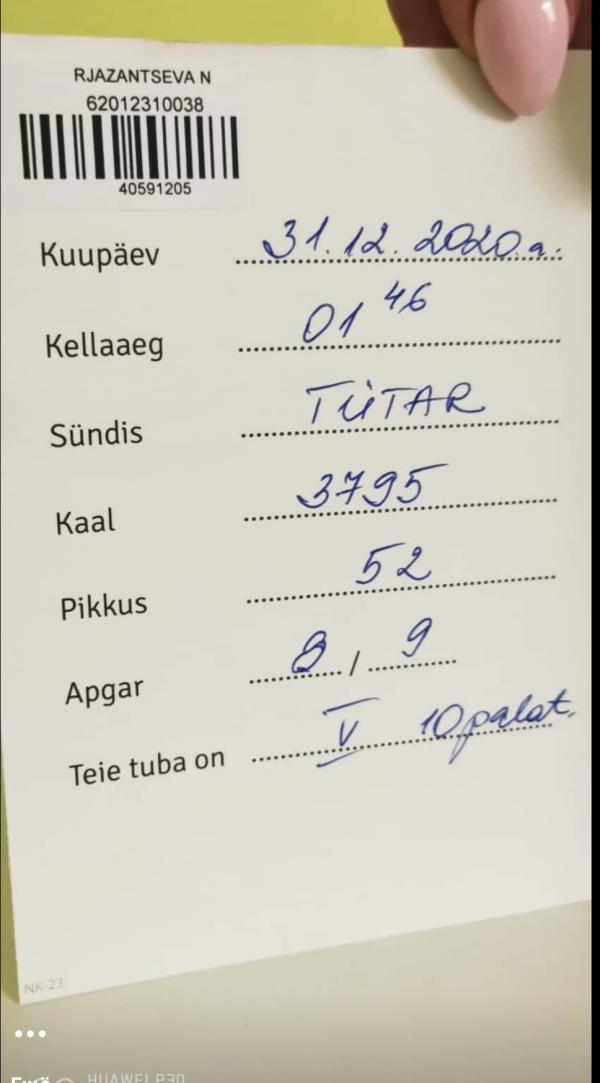 RJAZANTSEVA N
62012310038
40591205
Kuupäev 31.12.2020.a.
Kellaaeg 01 46
Sündis TÜTAR
Kaal 3795
Pikkus 52
Apgar 8 / 9
Teie tuba on V 10 palat.
NK-23
HUAWEI P30